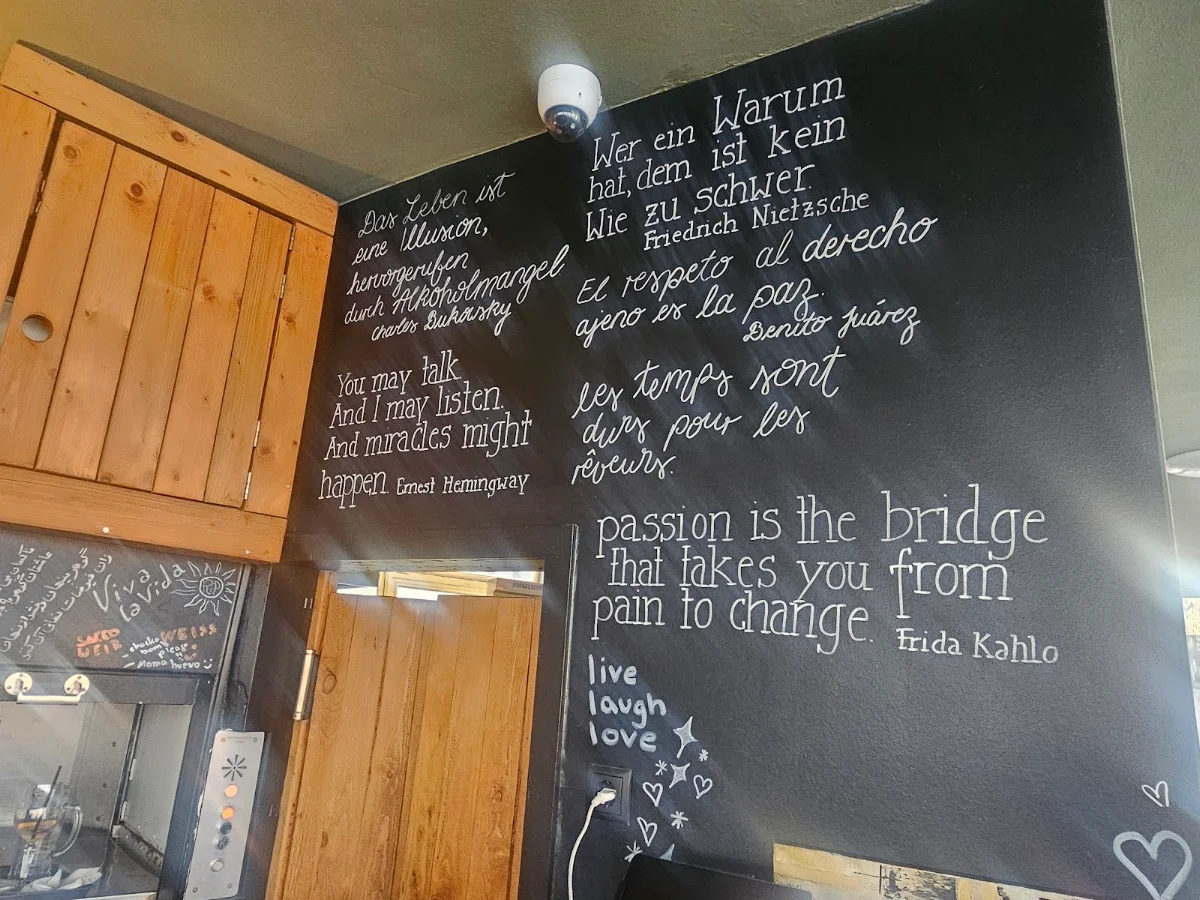 Das Leben ist
eine Illusion,
hervorgerufen
durch Alkoholmangel
Charles Bukowsky
You may talk.
And I may listen.
And miracles might
happen. Ernest Hemingway
Wer ein Warum
hat, dem ist kein
Wie zu schwer.
Friedrich Nietzsche
El respeto al derecho
ajeno es la paz.
Benito Juárez
les temps sont
durs pour les
rêveurs.
passion is the bridge
that takes you from
pain to change.
Frida Kahlo
live
laugh
love
Viva
la Vida
WEISS
please
Mama huevo